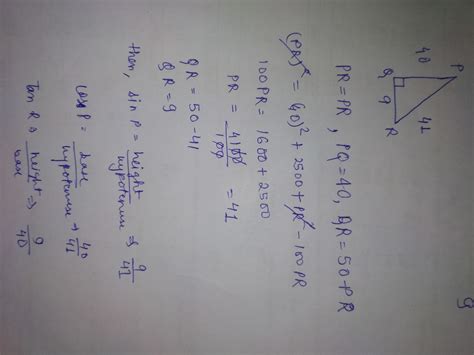 9
P
40
41
Q
9
R
PR=PR, PQ=40, QR=50-PR
(PR)² = (40)² + 2500 + PR² - 100PR
100PR = 1600 + 2500
PR = 4100/100 = 41
QR = 50-41
QR = 9
then, sin P = height/hypotenuse ⇒ 9/41
cos P = base/hypotenuse ⇒ 40/41
Tan R ⇒ height/base ⇒ 9/40